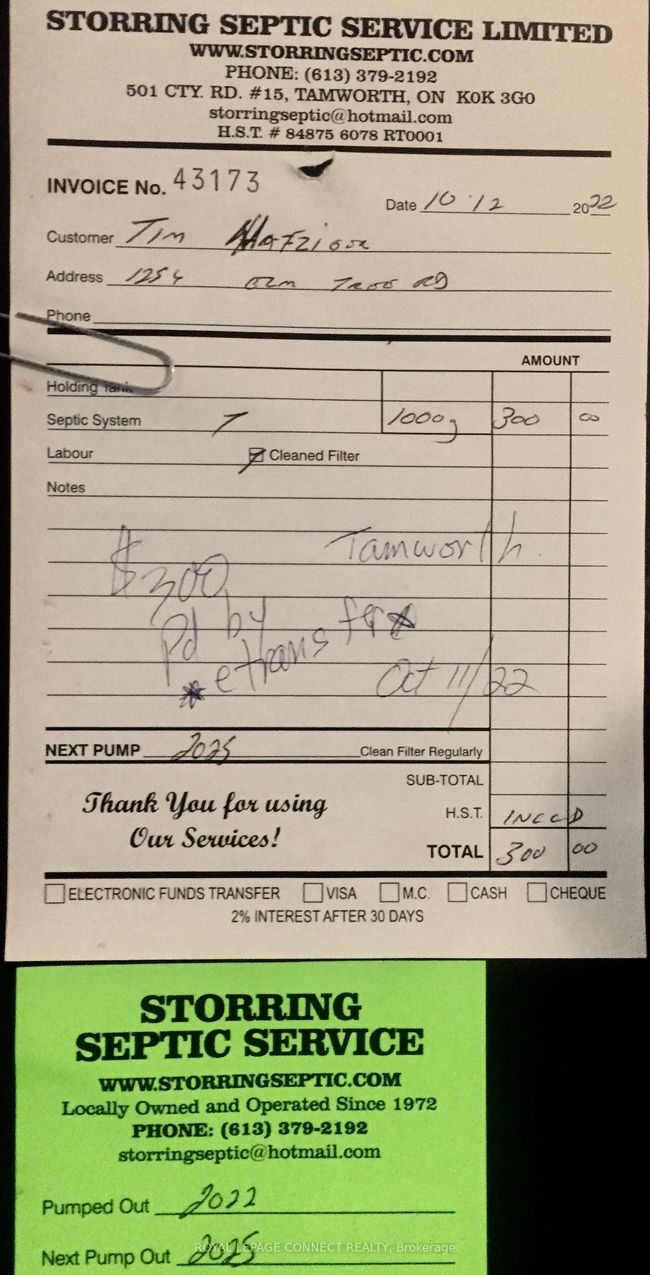 STORRING SEPTIC SERVICE LIMITED
WWW.STORRINGSEPTIC.COM
PHONE: (613) 379-2192
501 CTY. RD. #15, TAMWORTH, ON K0K 3G0
storringseptic@hotmail.com
H.S.T. # 84875 6078 RT0001
INVOICE No. 43173
Date 10 12 2022
Customer Tim
Address 1254 Elm Tree RD
Phone
AMOUNT
Holding Tank
Septic System 1000g 300 00
Labour Cleaned Filter
Notes
Tamworth.
$300
Pd by
*etransfer*
Oct 11/22
NEXT PUMP 2025 Clean Filter Regularly
SUB-TOTAL
Thank You for using
Our Services!
H.S.T. INCLD
TOTAL 300 00
ELECTRONIC FUNDS TRANSFER VISA M.C. CASH CHEQUE
2% INTEREST AFTER 30 DAYS
STORRING
SEPTIC SERVICE
WWW.STORRINGSEPTIC.COM
Locally Owned and Operated Since 1972
PHONE: (613) 379-2192
storringseptic@hotmail.com
Pumped Out 2022
Next Pump Out 2025
ROYAL LEPAGE CONNECT REALTY, Brokerage